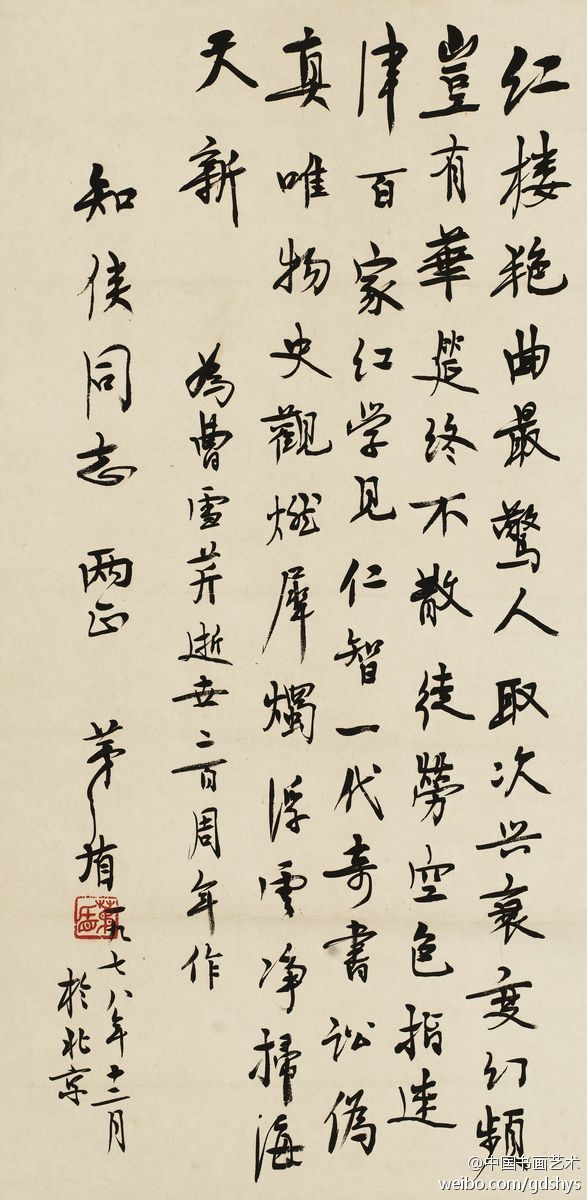 红楼艳曲最驚人取次兴衰变幻頻
豈有華筵终不散徒劳空色指迷
津百家红学見仁智一代奇書訟偽
真唯物史觀燃犀燭浮雲净掃海
天新
為曹雪芹逝世二百周年作
知侠同志两正
茅盾
一九七八年十二月
於北京
@中国书画艺术
weibo.com/gdshys